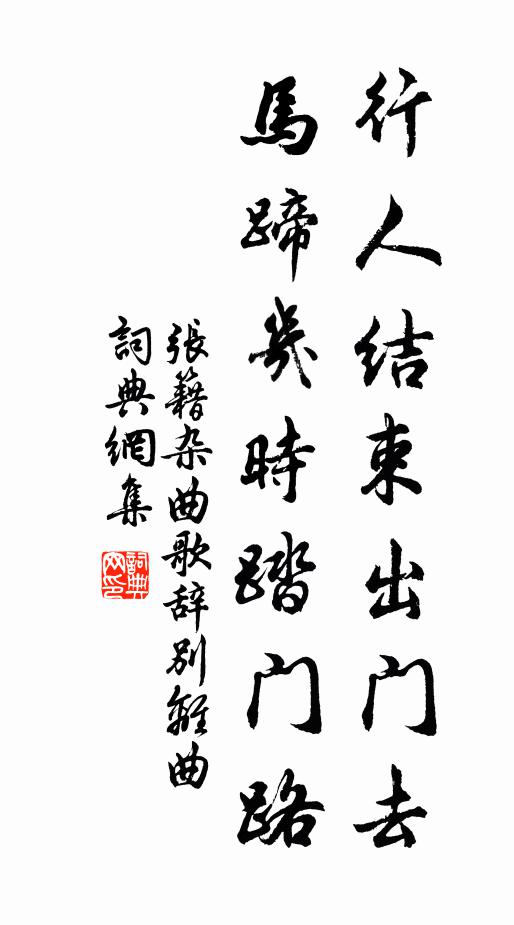 行人结束出门去
馬蹄幾時踏门路
張籍杂曲歌辞别離曲
詞典網集
詞典
网印